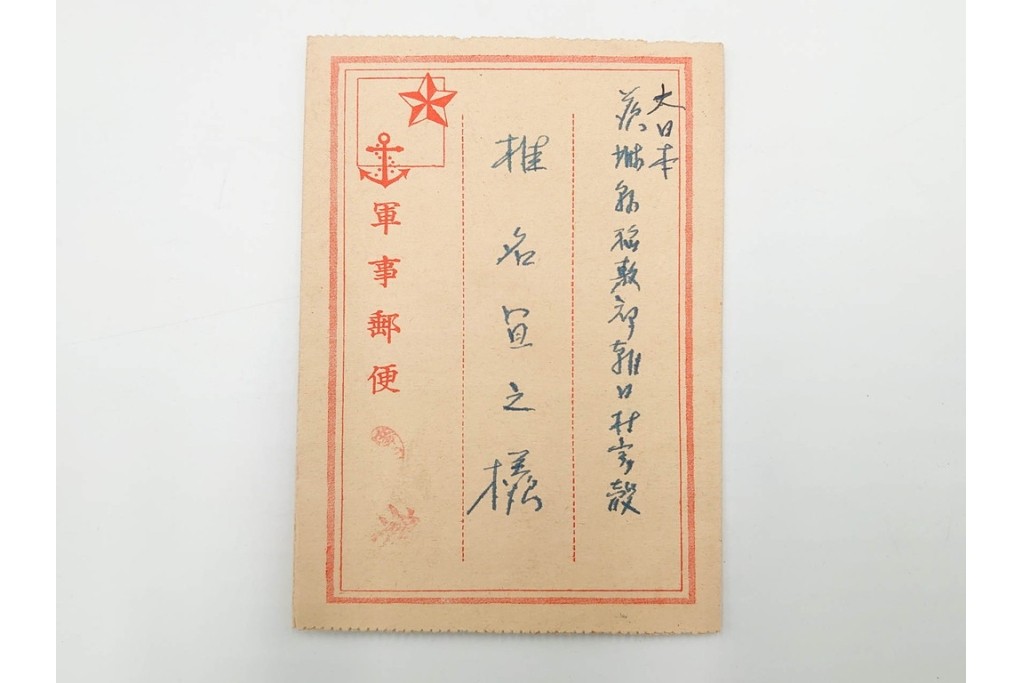 大日本
茨城縣稲敷郡朝日村実穀
椎名宣之様
軍事郵便